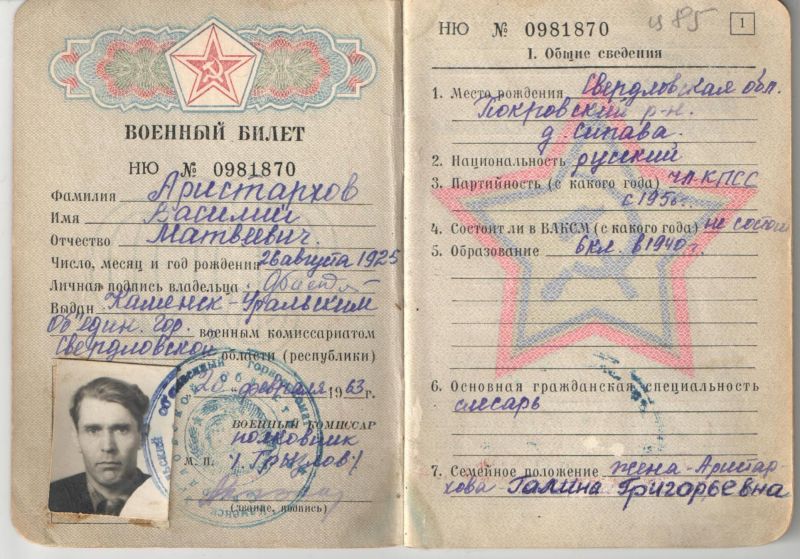 ВОЕННЫЙ БИЛЕТ
НЮ № 0981870
Фамилия Аристархов
Имя Василий
Отчество Матвеевич.
Число, месяц и год рождения 26 августа 1925
Личная подпись владельца
Выдан Каменск-Уральским
Об'един. гор. военным комиссариатом
Свердловской области (республики)
„20" февраля 1963 г.
ВОЕННЫЙ КОМИССАР
полковник
М. П. /Грызлов/
(звание, подпись)
НЮ № 0981870
и 85
1
I. Общие сведения
1. Место рождения Свердловская обл.
Покровский р-н.
д. Сипава.
2. Национальность русский
3. Партийность (с какого года) чл. КПСС
с 1956 г.
4. Состоит ли в ВЛКСМ (с какого года) не состоял
5. Образование 6 кл. в 1940 г.
6. Основная гражданская специальность
слесарь
7. Семейное положение жена - Аристар-
хова - Галина Григорьевна